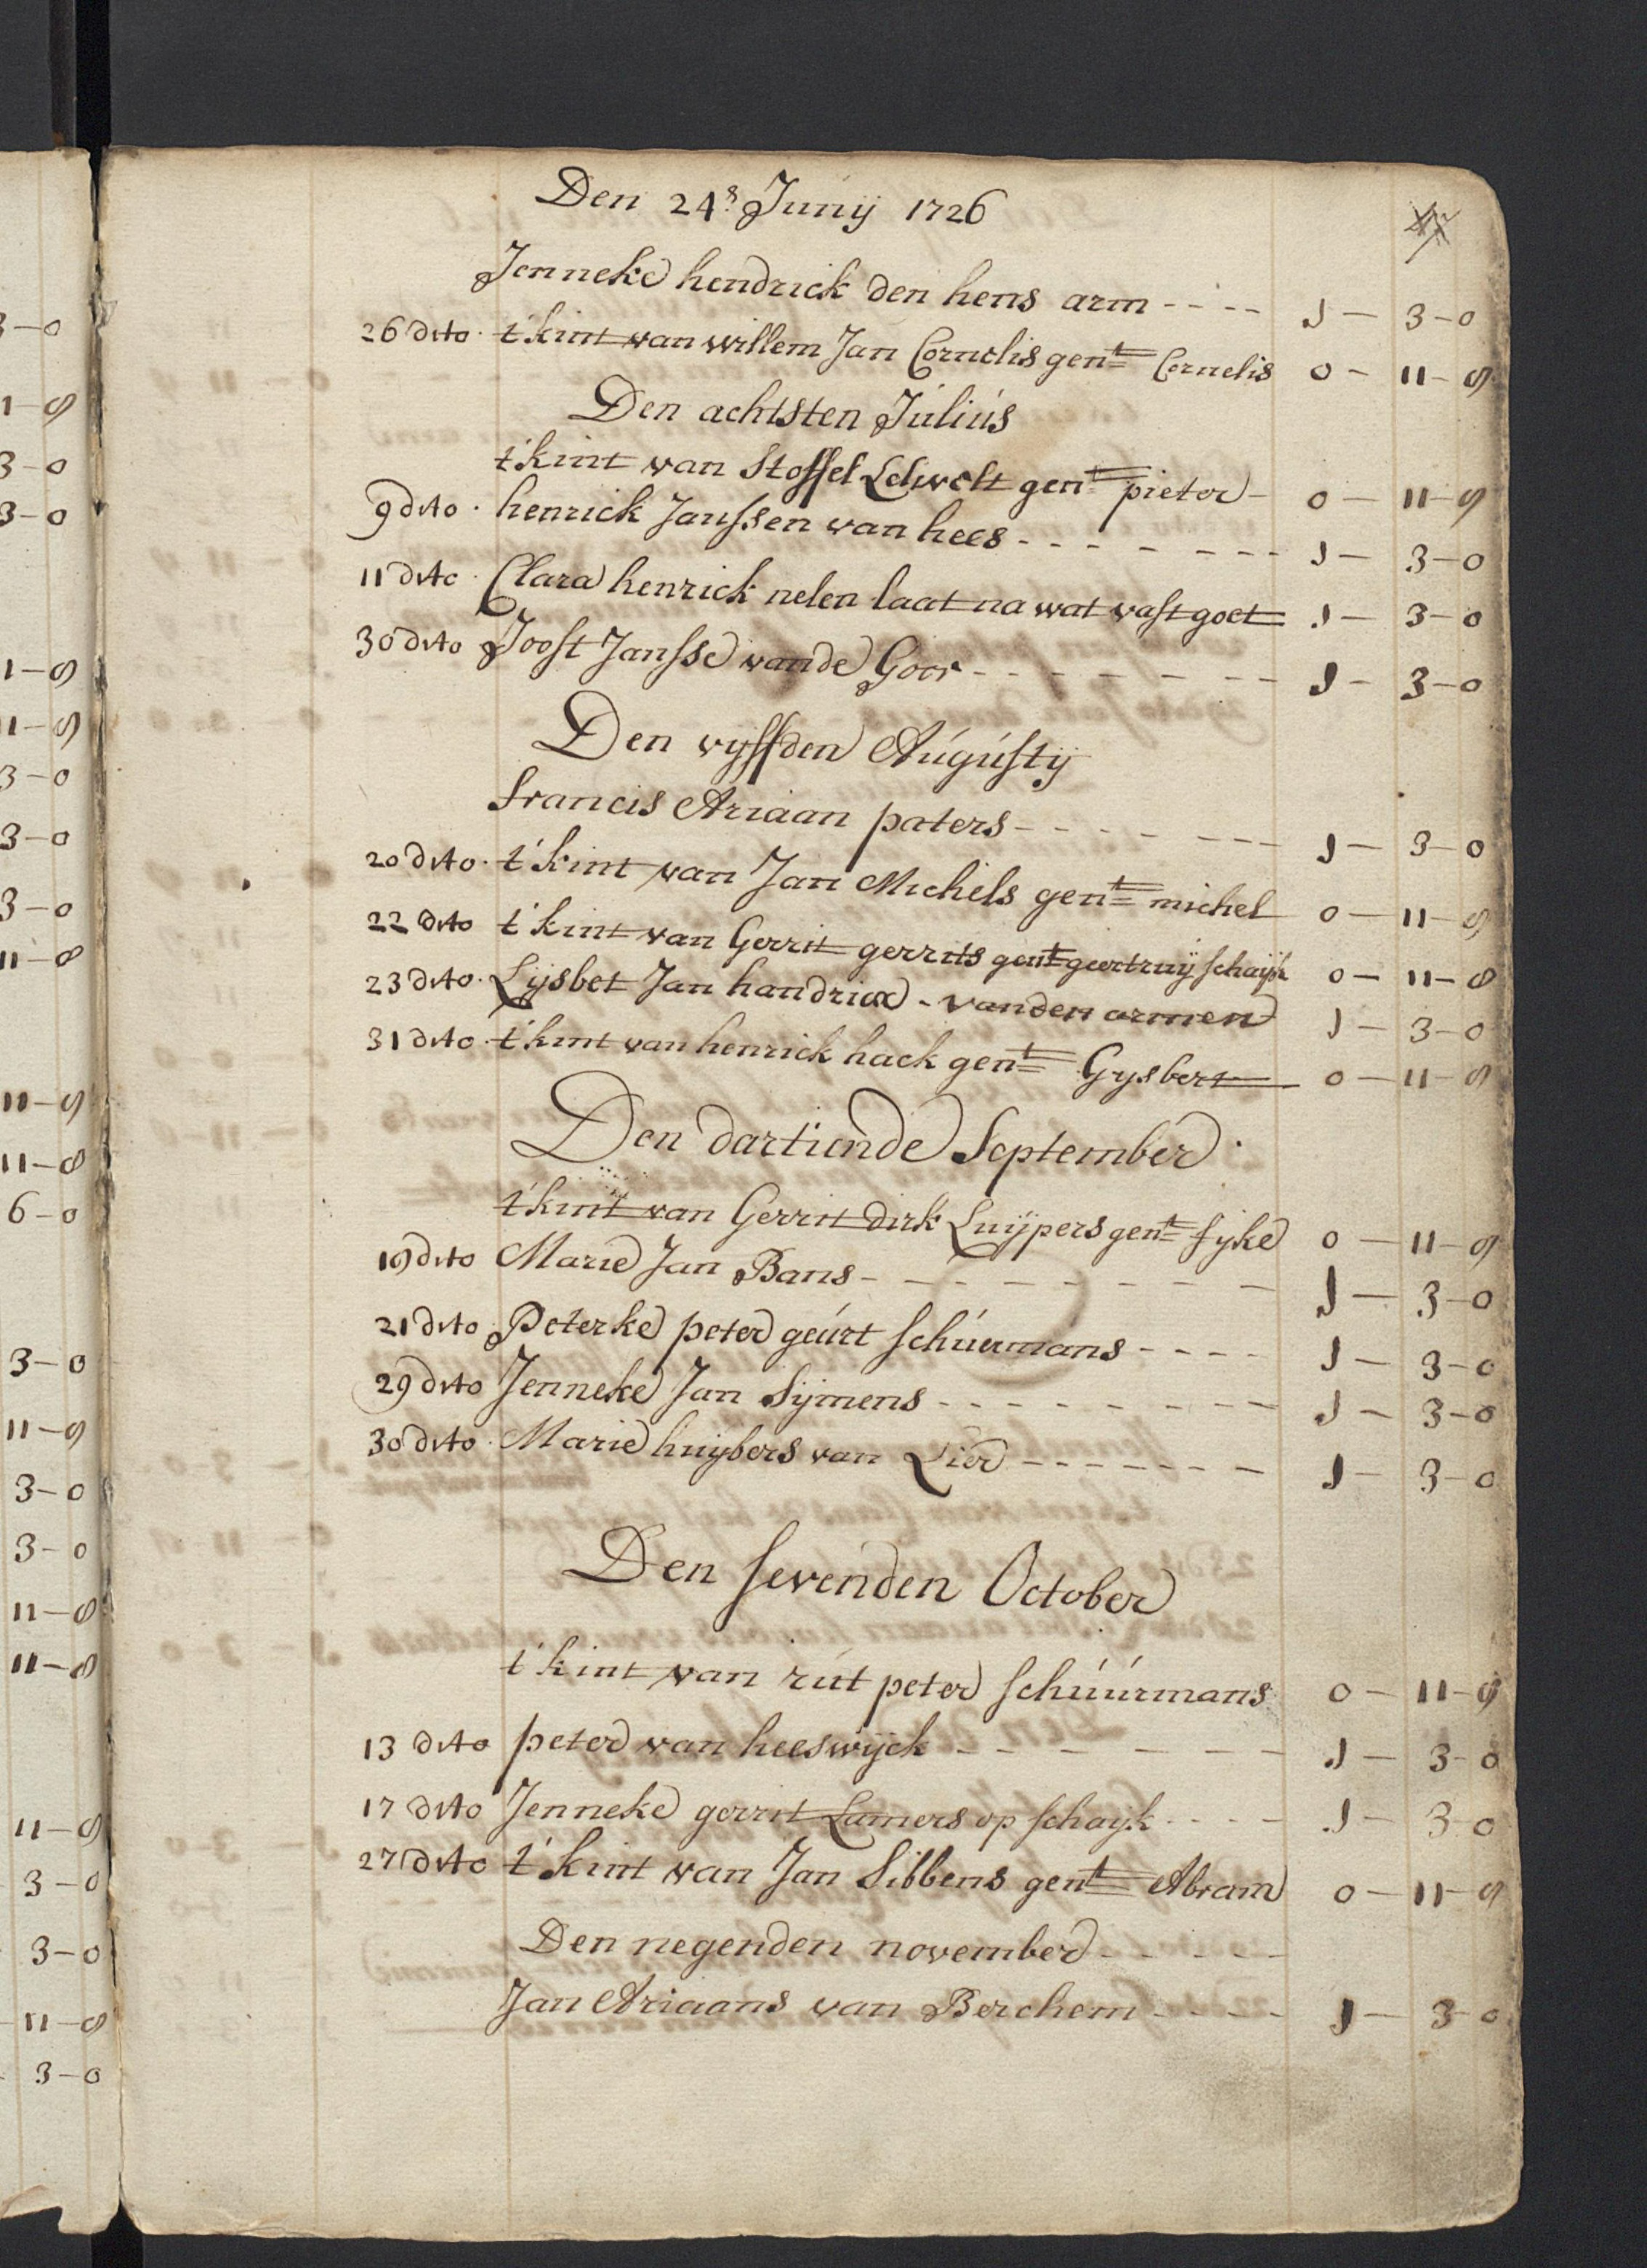 Den 24s Junij 1726
Jenneke hendrick den hens arm - - - - 1 — 3 - 0
26 dito t'kint van willem Jan Cornelis gent Cornelis 0 - 11 - 8
Den achtsten Julius
t'kint van Stoffel gent pieter - 0 — 11 - 8
9 dito henrick Janssen van hees - - - - - - - 1 — 3 - 0
11 dito Clara henrick nelen laat na wat vast goet 1 — 3 - 0
30 dito Joost Jansse vande Goor - - - - - - - 1 - 3 - 0
Den vyffden Augustij
Francis Ariaan paters - - - - - - - 1 — 3 - 0
20 dito t'kint van Jan Michels gent michel 0 — 11 - 8
22 dito t'kint van Gerrit gerrits gent geertruy schayk 0 — 11 - 8
23 dito Lysbet Jan handrix - vanden armen 1 — 3 - 0
31 dito t'kint van henrick hack gent Gysbert 0 — 11 - 8
Den dartiende September
t'kint van Gerrit dirk Luijpers gent fyke 0 — 11 - 8
19 dito Marie Jan Bans - - - - - - - 1 — 3 - 0
21 dito Peterke peter geurt schuermans - - - - 1 — 3 - 0
29 dito Jenneke Jan Sijmens - - - - - - - 1 — 3 - 0
30 dito Marie huijbers van Lier - - - - - - - 1 - 3 - 0
Den sevenden October
t'kint van rut peter schuurmans 0 — 11 - 8
13 dito peter van heeswijck - - - - - - 1 — 3 - 0
17 dito Jenneke gerrit Lamers op schayk - - - - 1 — 3 - 0
27 dito t'kint van Jan Sibbens gent Abram 0 — 11 - 8
Den negenden november - - - - -
Jan Ariaans van Berchem - - - - 1 — 3 - 0